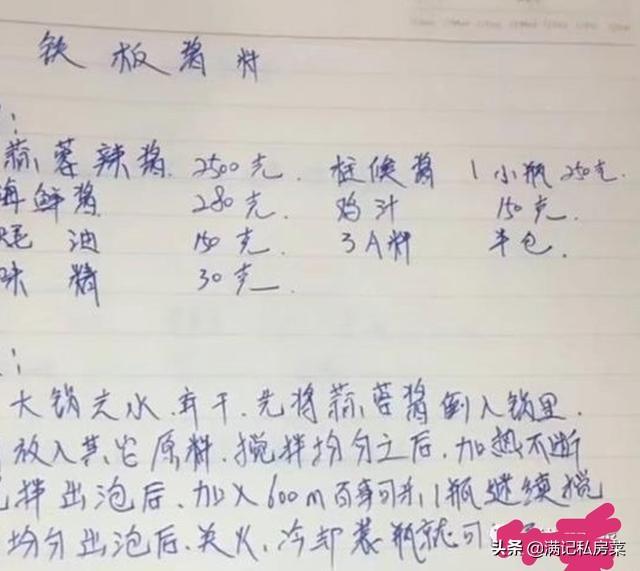 铁板酱料
:
蒜蓉辣酱 2500克. 柱候酱 1小瓶250克.
海鲜酱 280克. 鸡汁 150克.
蚝油 150克. 3A料 半包.
味精 30克.
:
大锅去水.弃干.先将蒜蓉酱倒入锅里.
放入其它原料.搅拌均匀之后.加热不断
拌出泡后.加入600m百事可乐1瓶继续搅
均匀出泡后.关火.冷却装瓶就可
头条 @满记私房菜